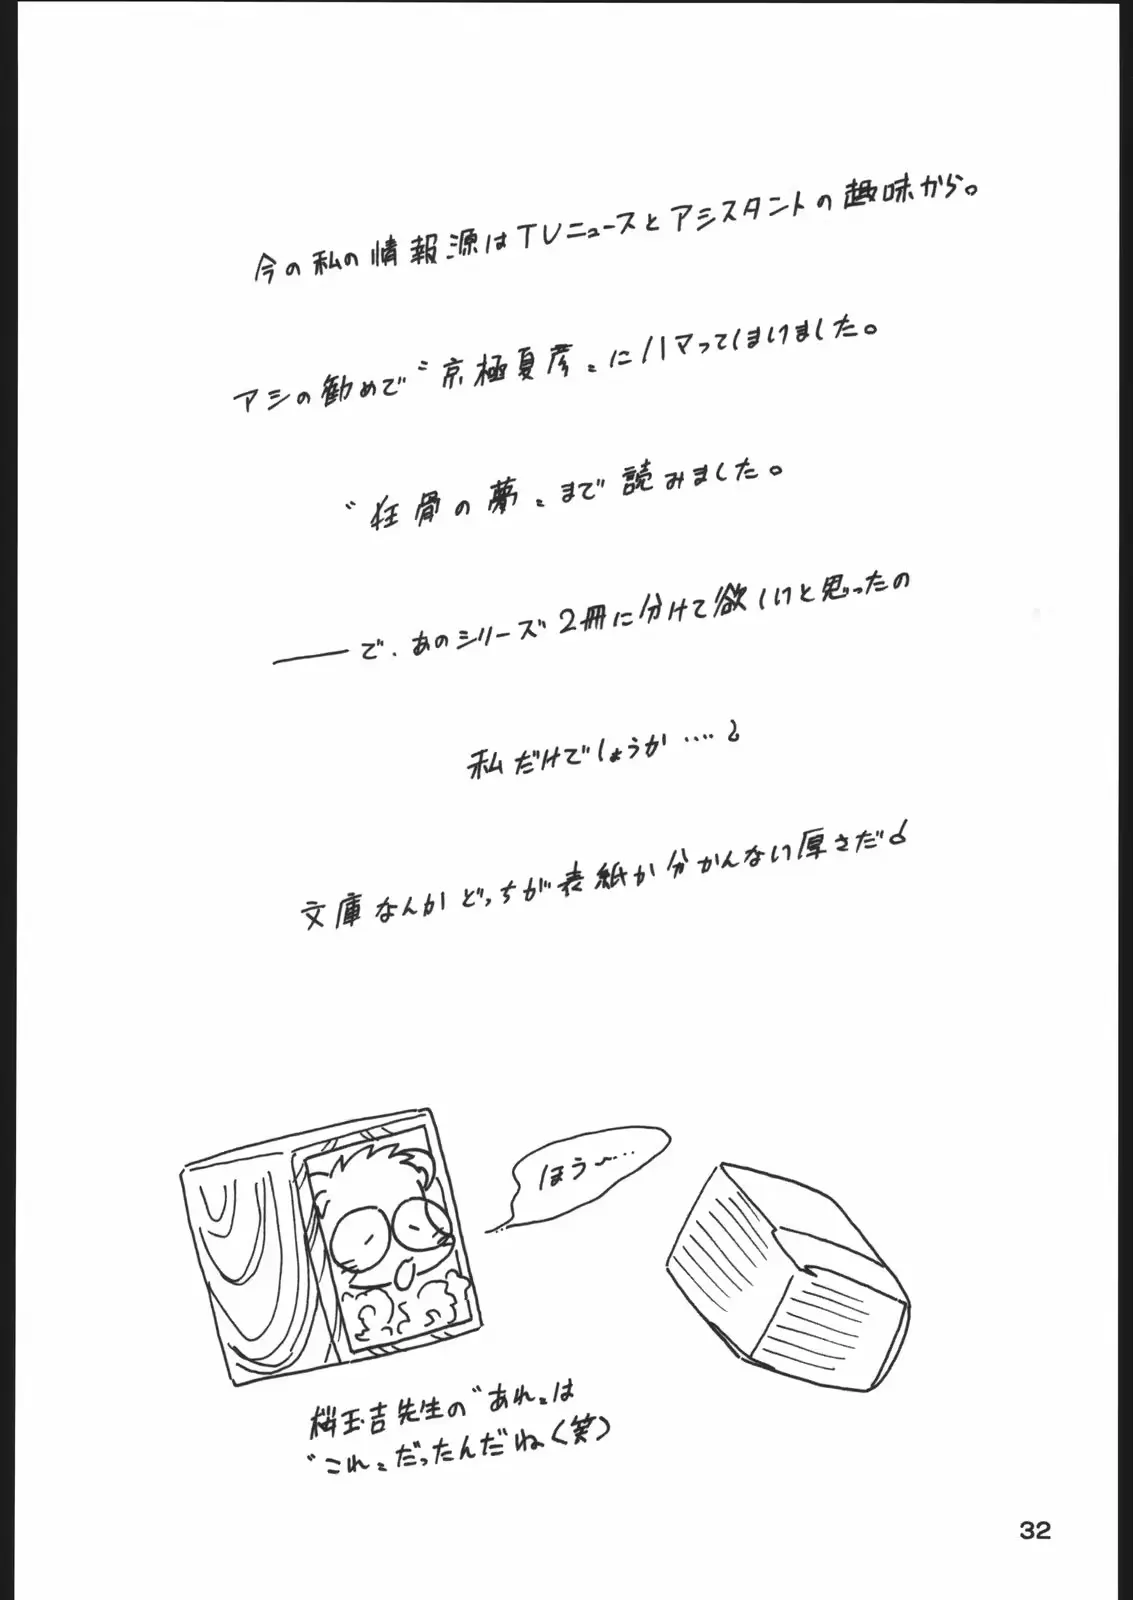 今の私の情報源はTVニュースとアシスタントの趣味から。
アシの勧めで〝京極夏彦〟にハマってしまいました。
〝狂骨の夢〟まで読みました。
――で、あのシリーズ2冊に分けて欲しいと思ったの
私だけでしょうか‥‥?
文庫なんかどっちが表紙か分かんない厚さだ!
ほう〜‥‥
桜玉吉先生の〝あれ〟は
〝これ〟だったんだね(笑)
32